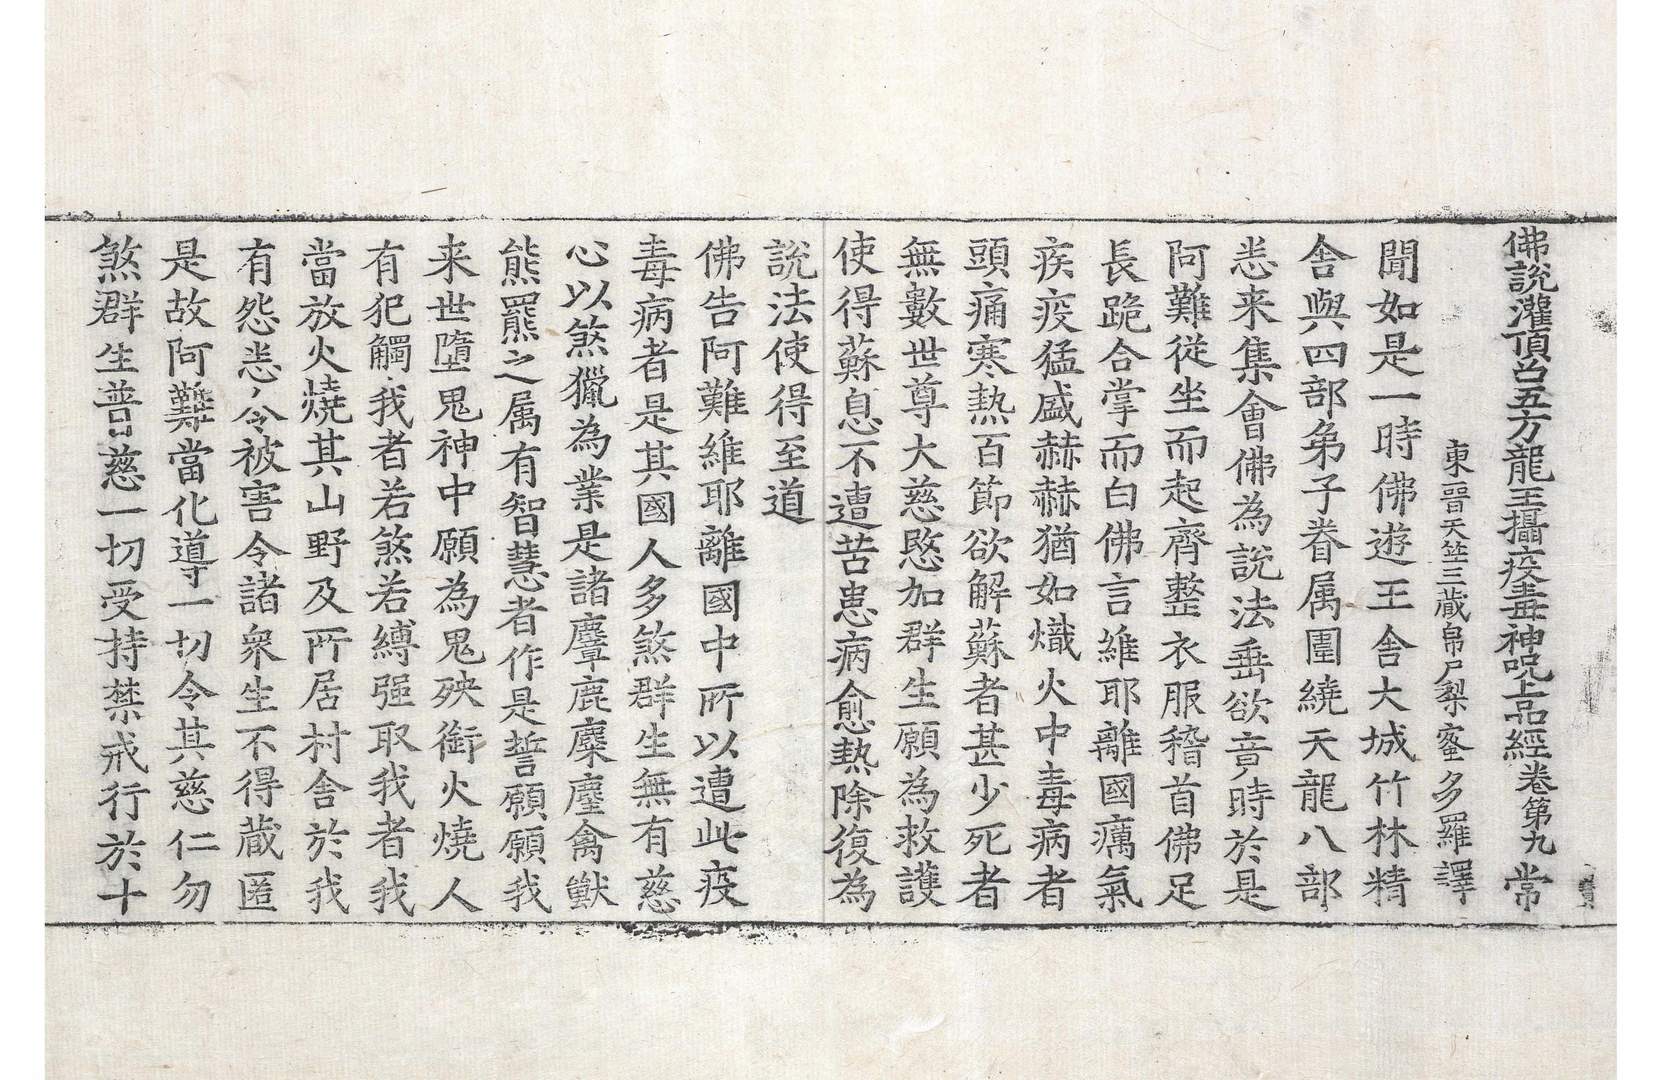 佛說灌頂召五方龍王攝疫毒神呪上品經卷第九 常
東晉天竺三藏帛尸梨蜜多羅譯
聞如是一時佛遊王舍大城竹林精
舍與四部弟子眷属圍繞天龍八部
悉来集會佛為說法垂欲竟時於是
阿難從坐而起齊整衣服稽首佛足
長跪合掌而白佛言維耶離國癘氣
疾疫猛盛赫赫猶如熾火中毒病者
頭痛寒熱百節欲解蘇者甚少死者
無數世尊大慈愍加群生願為救護
使得蘇息不遭苦患病愈熱除復為
說法使得至道
佛告阿難維耶離國中所以遭此疫
毒病者是其國人多煞群生無有慈
心以煞獵為業是諸麞鹿麋麈禽獸
熊羆之属有智慧者作是誓願願我
来世墮鬼神中願為鬼殃銜火燒人
有犯觸我者若煞若縛强取我者我
當放火燒其山野及所居村舍於我
有怨恚令被害令諸衆生不得藏匿
是故阿難當化導一切令其慈仁勿
煞群生普慈一切受持禁戒行於十